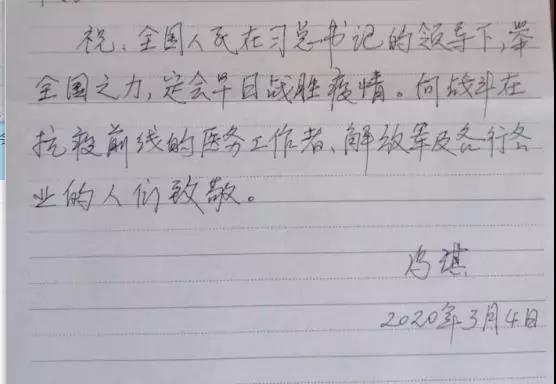 祝:全国人民在习总书记的领导下,举
全国之力,定会早日战胜疫情。向战斗在
抗疫前线的医务工作者、解放军及各行各
业的人们致敬。
冯琪
2020年3月4日